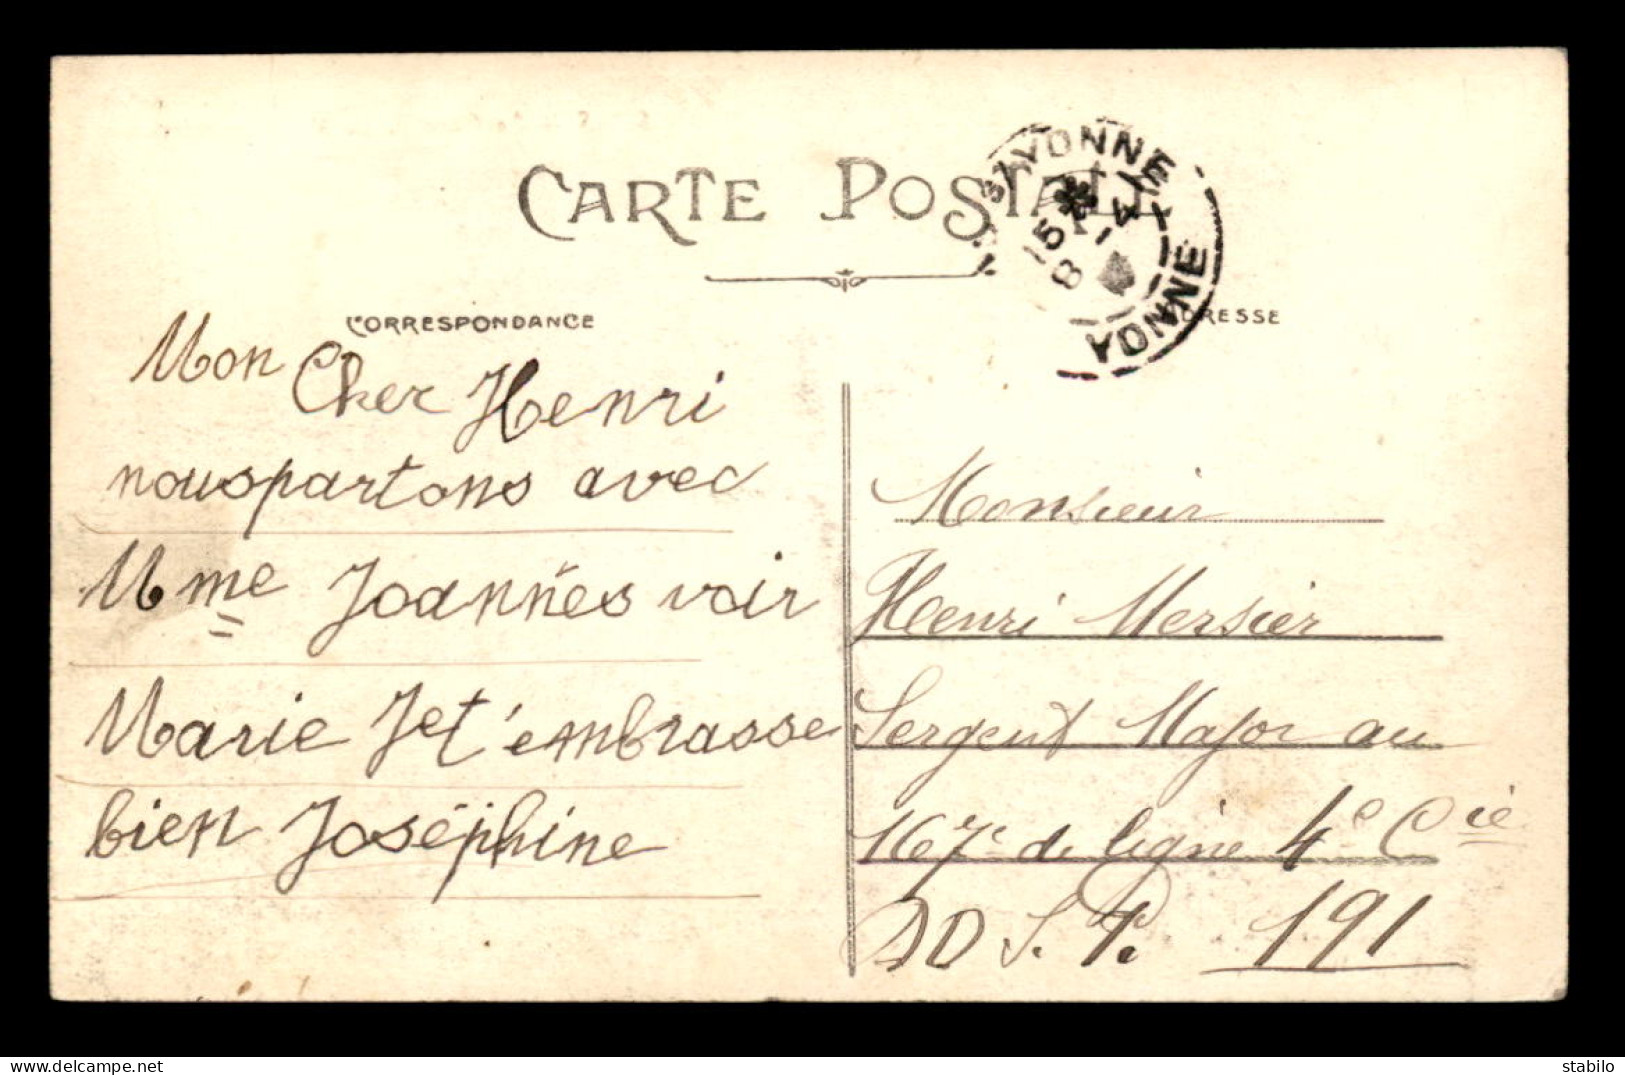 CARTE POSTALE
CORRESPONDANCE
Mon Cher Henri
nous partons avec
Mme Joannès voir
Marie Je t'embrasse
bien Joséphine
YONNE
15 *
8 - 4
YONNE
ADRESSE
Monsieur
Henri Mersier
Sergent Major au
167e de ligne 4e Cie
S. P. 191
stabilo